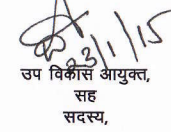 23/1/15
उप विकास आयुक्त,
सह
सदस्य,